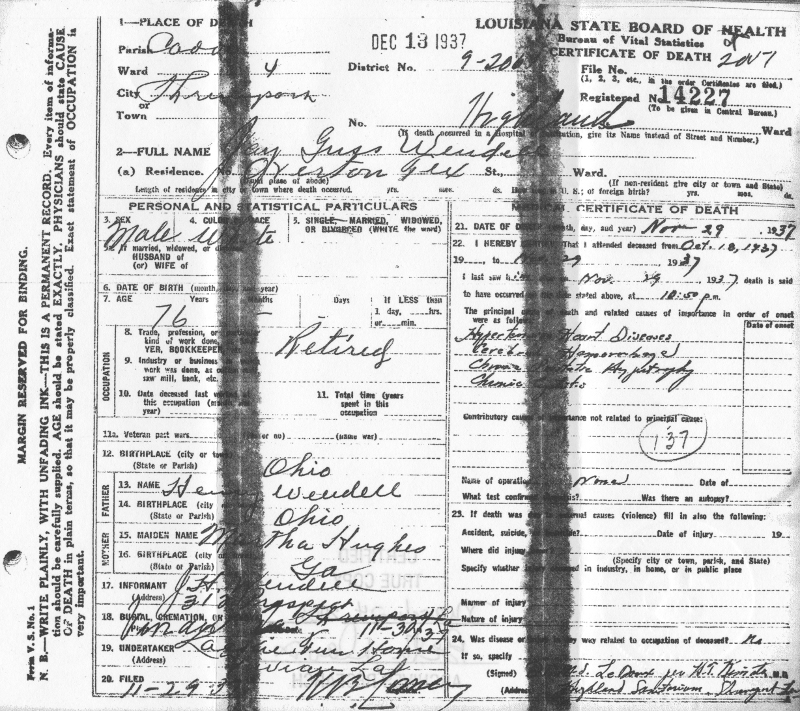 1—PLACE OF DEATH
Parish Caddo
Ward 4
City Shreveport
or
Town
DEC 13 1937
LOUISIANA STATE BOARD OF HEALTH
Bureau of Vital Statistics
CERTIFICATE OF DEATH
District No.
File No.
(1, 2, 3, etc., in the order Certificates are filed.)
Registered No. 14227
(To be given in Central Bureau.)
No. Highland Ward
(If death occurred in a hospital give its Name instead of Street and Number.)
2—FULL NAME Guss Wendell
(a) Residence. No. Overton Tex St., Ward.
(Usual place of abode) (If non-resident give city or town and State)
Length of residence in city or town where death occurred. yrs. mos. ds. How long in U. S.; of foreign birth? yrs. mos. ds.
PERSONAL AND STATISTICAL PARTICULARS
3. SEX 4. COLOR OR RACE 5. SINGLE, MARRIED, WIDOWED,
OR DIVORCED (WRITE the word)
Male White
5a. If married, widowed, or
HUSBAND of
(or) WIFE of
6. DATE OF BIRTH (month, day, and year)
7. AGE Years Months Days If LESS than
1 day, hrs.
or min.
76
8. Trade, profession, or
kind of work done,
YER, BOOKKEEPER
Retired
9. Industry or business
work was done, as
saw mill, bank, etc.
OCCUPATION
10. Date deceased last worked
this occupation (month and
year)
11. Total time (years
spent in this
occupation
11a. Veteran past wars (war or no) (name war)
12. BIRTHPLACE (city or town)
(State or Parish) Ohio
FATHER
13. NAME Henry Wendell
14. BIRTHPLACE (city or
(State or Parish) Ohio
MOTHER
15. MAIDEN NAME Martha Hughes
16. BIRTHPLACE (city or
(State or Parish) Ga
17. INFORMANT J. H. Wendell
(Address)
18. BURIAL, CREMATION, OR
11-30-37
19. UNDERTAKER Home
(Address) Vivian La
20. FILED 11-29-3
MEDICAL CERTIFICATE OF DEATH
21. DATE OF DEATH (month, day, and year) Nov 29, 1937
22. I HEREBY CERTIFY, That I attended deceased from Oct. 18, 1937
19 to Nov 29 1937
I last saw him on Nov. 29 1937 death is said
to have occurred on date stated above, at 10:50 p.m.
The principal cause of death and related causes of importance in order of onset
were as follows:
Date of onset
Heart Disease
Cerebral Hemorrhage
Chronic Prostate Hypertrophy
Contributory causes of importance not related to principal cause:
137
Name of operation None Date of
What test confirmed diagnosis? Was there an autopsy?
23. If death was due to external causes (violence) fill in also the following:
Accident, suicide, Date of injury 19
Where did injury
(Specify city or town, parish, and State)
Specify whether injury occurred in industry, in home, or in public place
Manner of injury
Nature of injury
24. Was disease or in any way related to occupation of deceased? No
If so, specify
(Signed) M.D.
(Address) Highland Sanitarium, Shreveport La
MARGIN RESERVED FOR BINDING.
N. B.—WRITE PLAINLY, WITH UNFADING INK—THIS IS A PERMANENT RECORD. Every item of informa-
tion should be carefully supplied. AGE should be stated EXACTLY. PHYSICIANS should state CAUSE
OF DEATH in plain terms, so that it may be properly classified. Exact statement of OCCUPATION is
very important.
Form V. S. No. 1
CERTIFIED
TRUE COPY